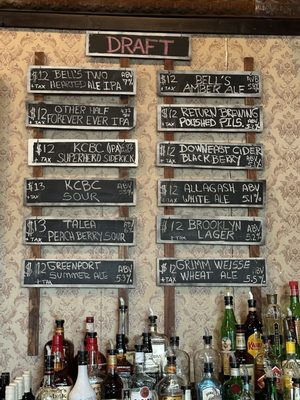 DRAFT
$12 BELL'S TWO ABV
+TAX HEARTED ALE IPA
$12 OTHER HALF
+TAX FOREVER EVER IPA
$12 KCBC (IPA)
+TAX SUPERHERO SIDEKICK
$13 KCBC
+TAX SOUR
$13 TALEA
+TAX PEACH BERRY SOUR
$12 GREENPORT ABV
+TAX SUMMER ALE 5.3%
$12 BELL'S
+TAX AMBER ALE
$12 RETURN BREWING
+TAX POLISHED PILS.
$12 DOWNEAST CIDER
+TAX BLACKBERRY
$12 ALLAGASH ABV
+TAX WHITE ALE
$12 BROOKLYN ABV
+TAX LAGER
$12 GRIMM WEISSE ABV
+TAX WHEAT ALE